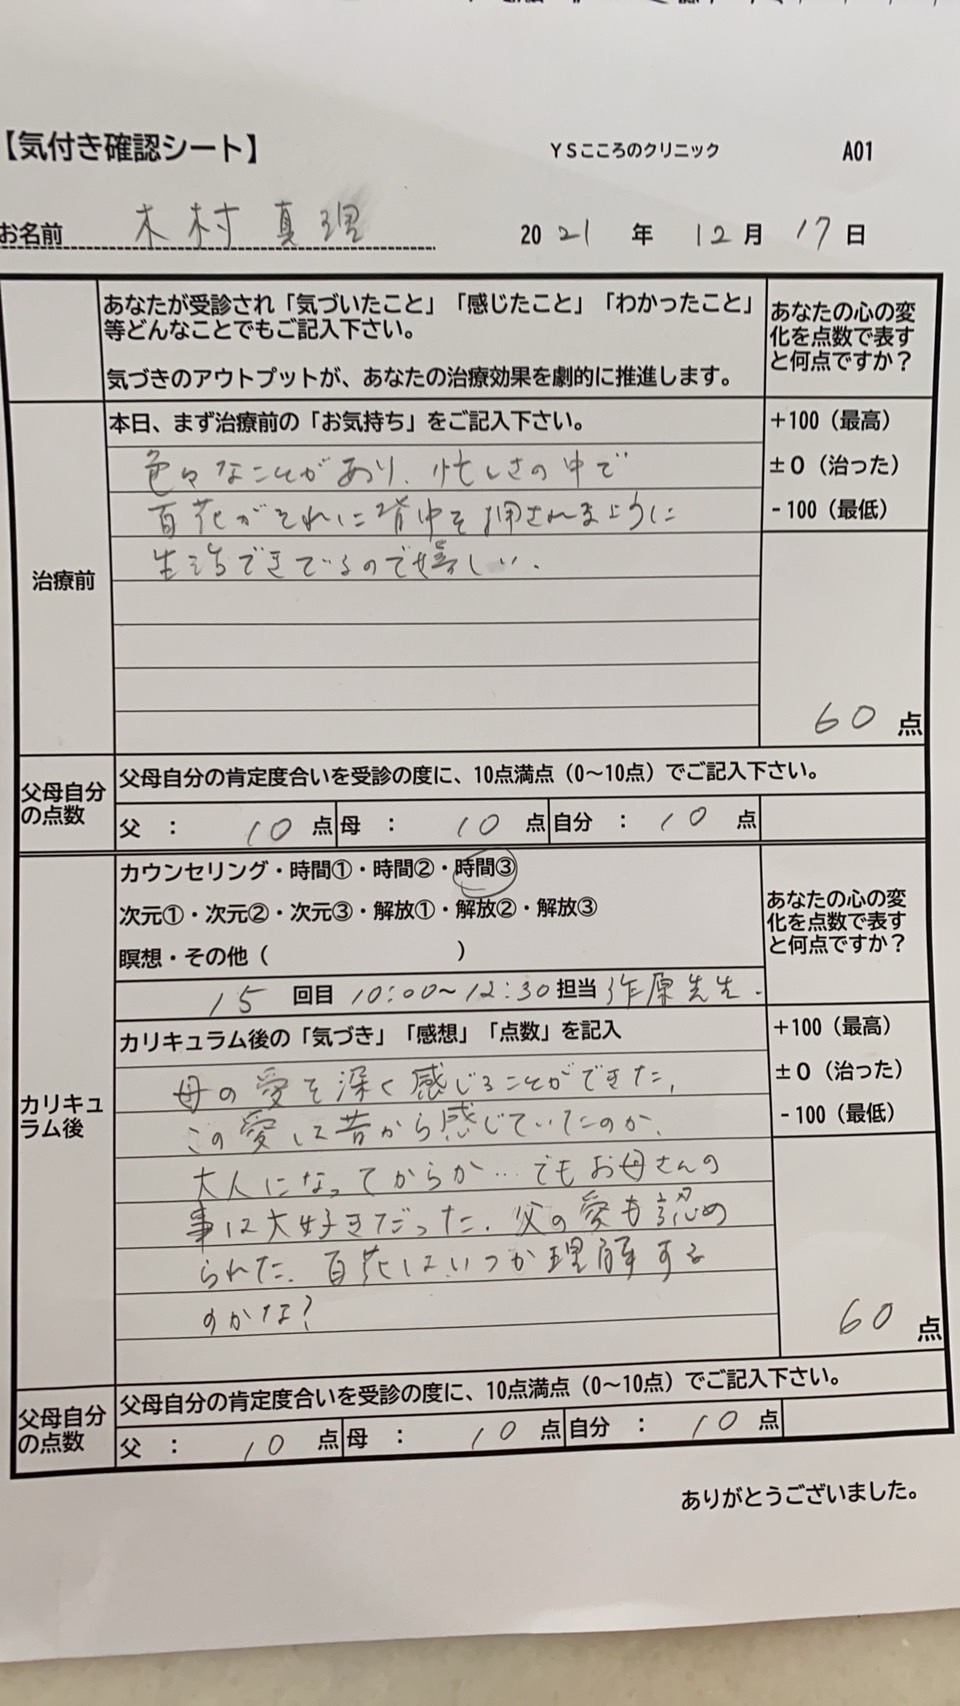 【気付き確認シート】 YSこころのクリニック A01
お名前 木村 真理 2021年 12月 17日
あなたが受診され「気づいたこと」「感じたこと」「わかったこと」
等どんなことでもご記入下さい。
気づきのアウトプットが、あなたの治療効果を劇的に推進します。
あなたの心の変
化を点数で表す
と何点ですか？
治療前
本日、まず治療前の「お気持ち」をご記入下さい。
色々なことがあり、忙しさの中で
百花がそれに背中を押されるように
生活できているので嬉しい.
+100（最高）
±0（治った）
-100（最低）
60点
父母自分
の点数
父母自分の肯定度合いを受診の度に、10点満点（0～10点）でご記入下さい。
父 ： 10点 母 ： 10点 自分 ： 10点
カリキュ
ラム後
カウンセリング・時間①・時間②・時間③
次元①・次元②・次元③・解放①・解放②・解放③
瞑想・その他（ ）
15回目 10:00～12:30 担当 原先生.
カリキュラム後の「気づき」「感想」「点数」を記入
母の愛を深く感じることができた,
この愛して昔から感じていたのか,
大人になってからか…でもお母さんの
事は大好きだった. 父の愛も認め
られた. 百花はいつか理解する
のかな?
あなたの心の変
化を点数で表す
と何点ですか？
+100（最高）
±0（治った）
-100（最低）
60点
父母自分
の点数
父母自分の肯定度合いを受診の度に、10点満点（0～10点）でご記入下さい。
父 ： 10点 母 ： 10点 自分 ： 10点
ありがとうございました。